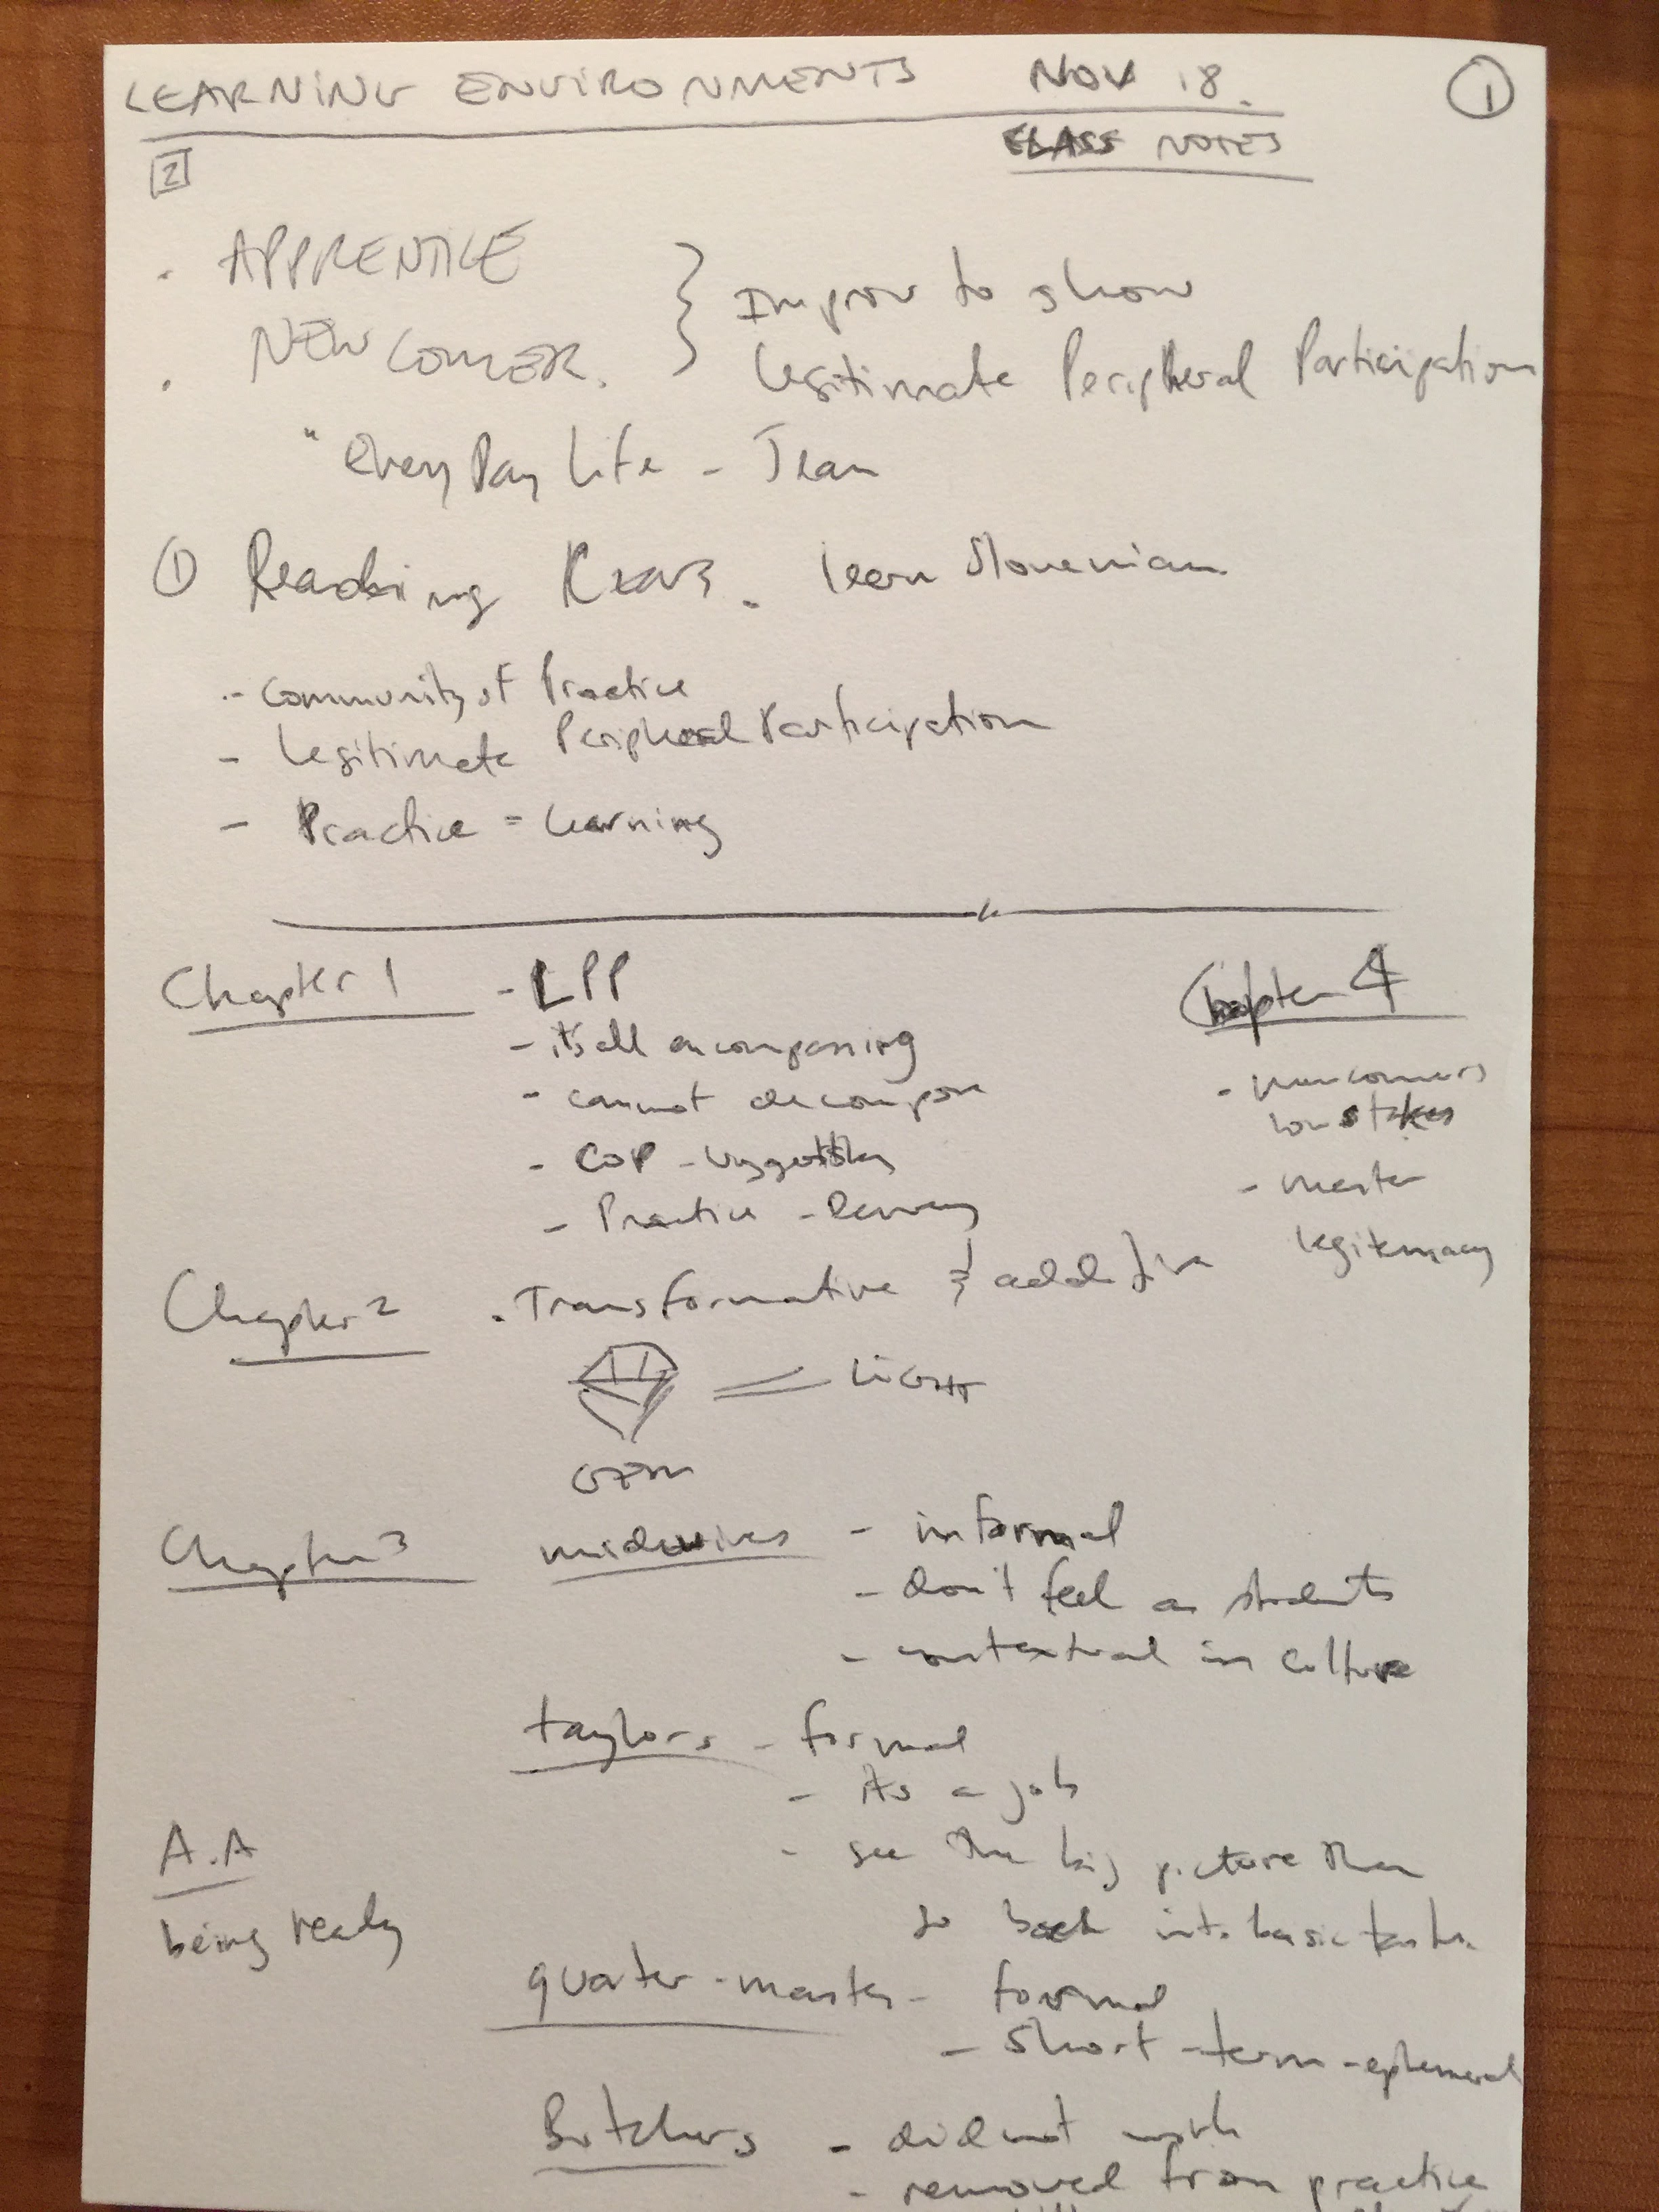 LEARNING ENVIRONMENTS NOV 18. ①
CLASS NOTES
2
. APPRENTICE
. NEWCOMER.
} Improv to show
Legitimate Peripheral Participation
" Every Day Life - Jean
① Reading learn Slovenian
- Community of Practice
- Legitimate Peripheral Participation
- Practice = Learning
Chapter 1 - LPP
- its all encompassing
- cannot decompose
- COP - Vygotsky
- Practice - Dewey
Chapter 4
- newcomers
low stakes
- master
legitemacy
Chapter 2 . Transformative & additive
= LIGHT
GEM
Chapter 3 midwives - informal
- don't feel as students
- contextual in culture
taylors - formal
- As a job
- see the big picture then
go back into basic tasks.
A.A
being ready
quarter-master - formal
- short-term - ephemeral
Butchers - did not work
- removed from practice